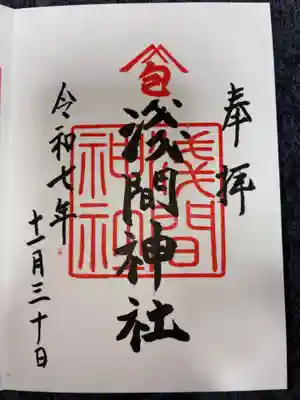 奉拝
浅間神社
浅間神社
令和七年
十一月三十日